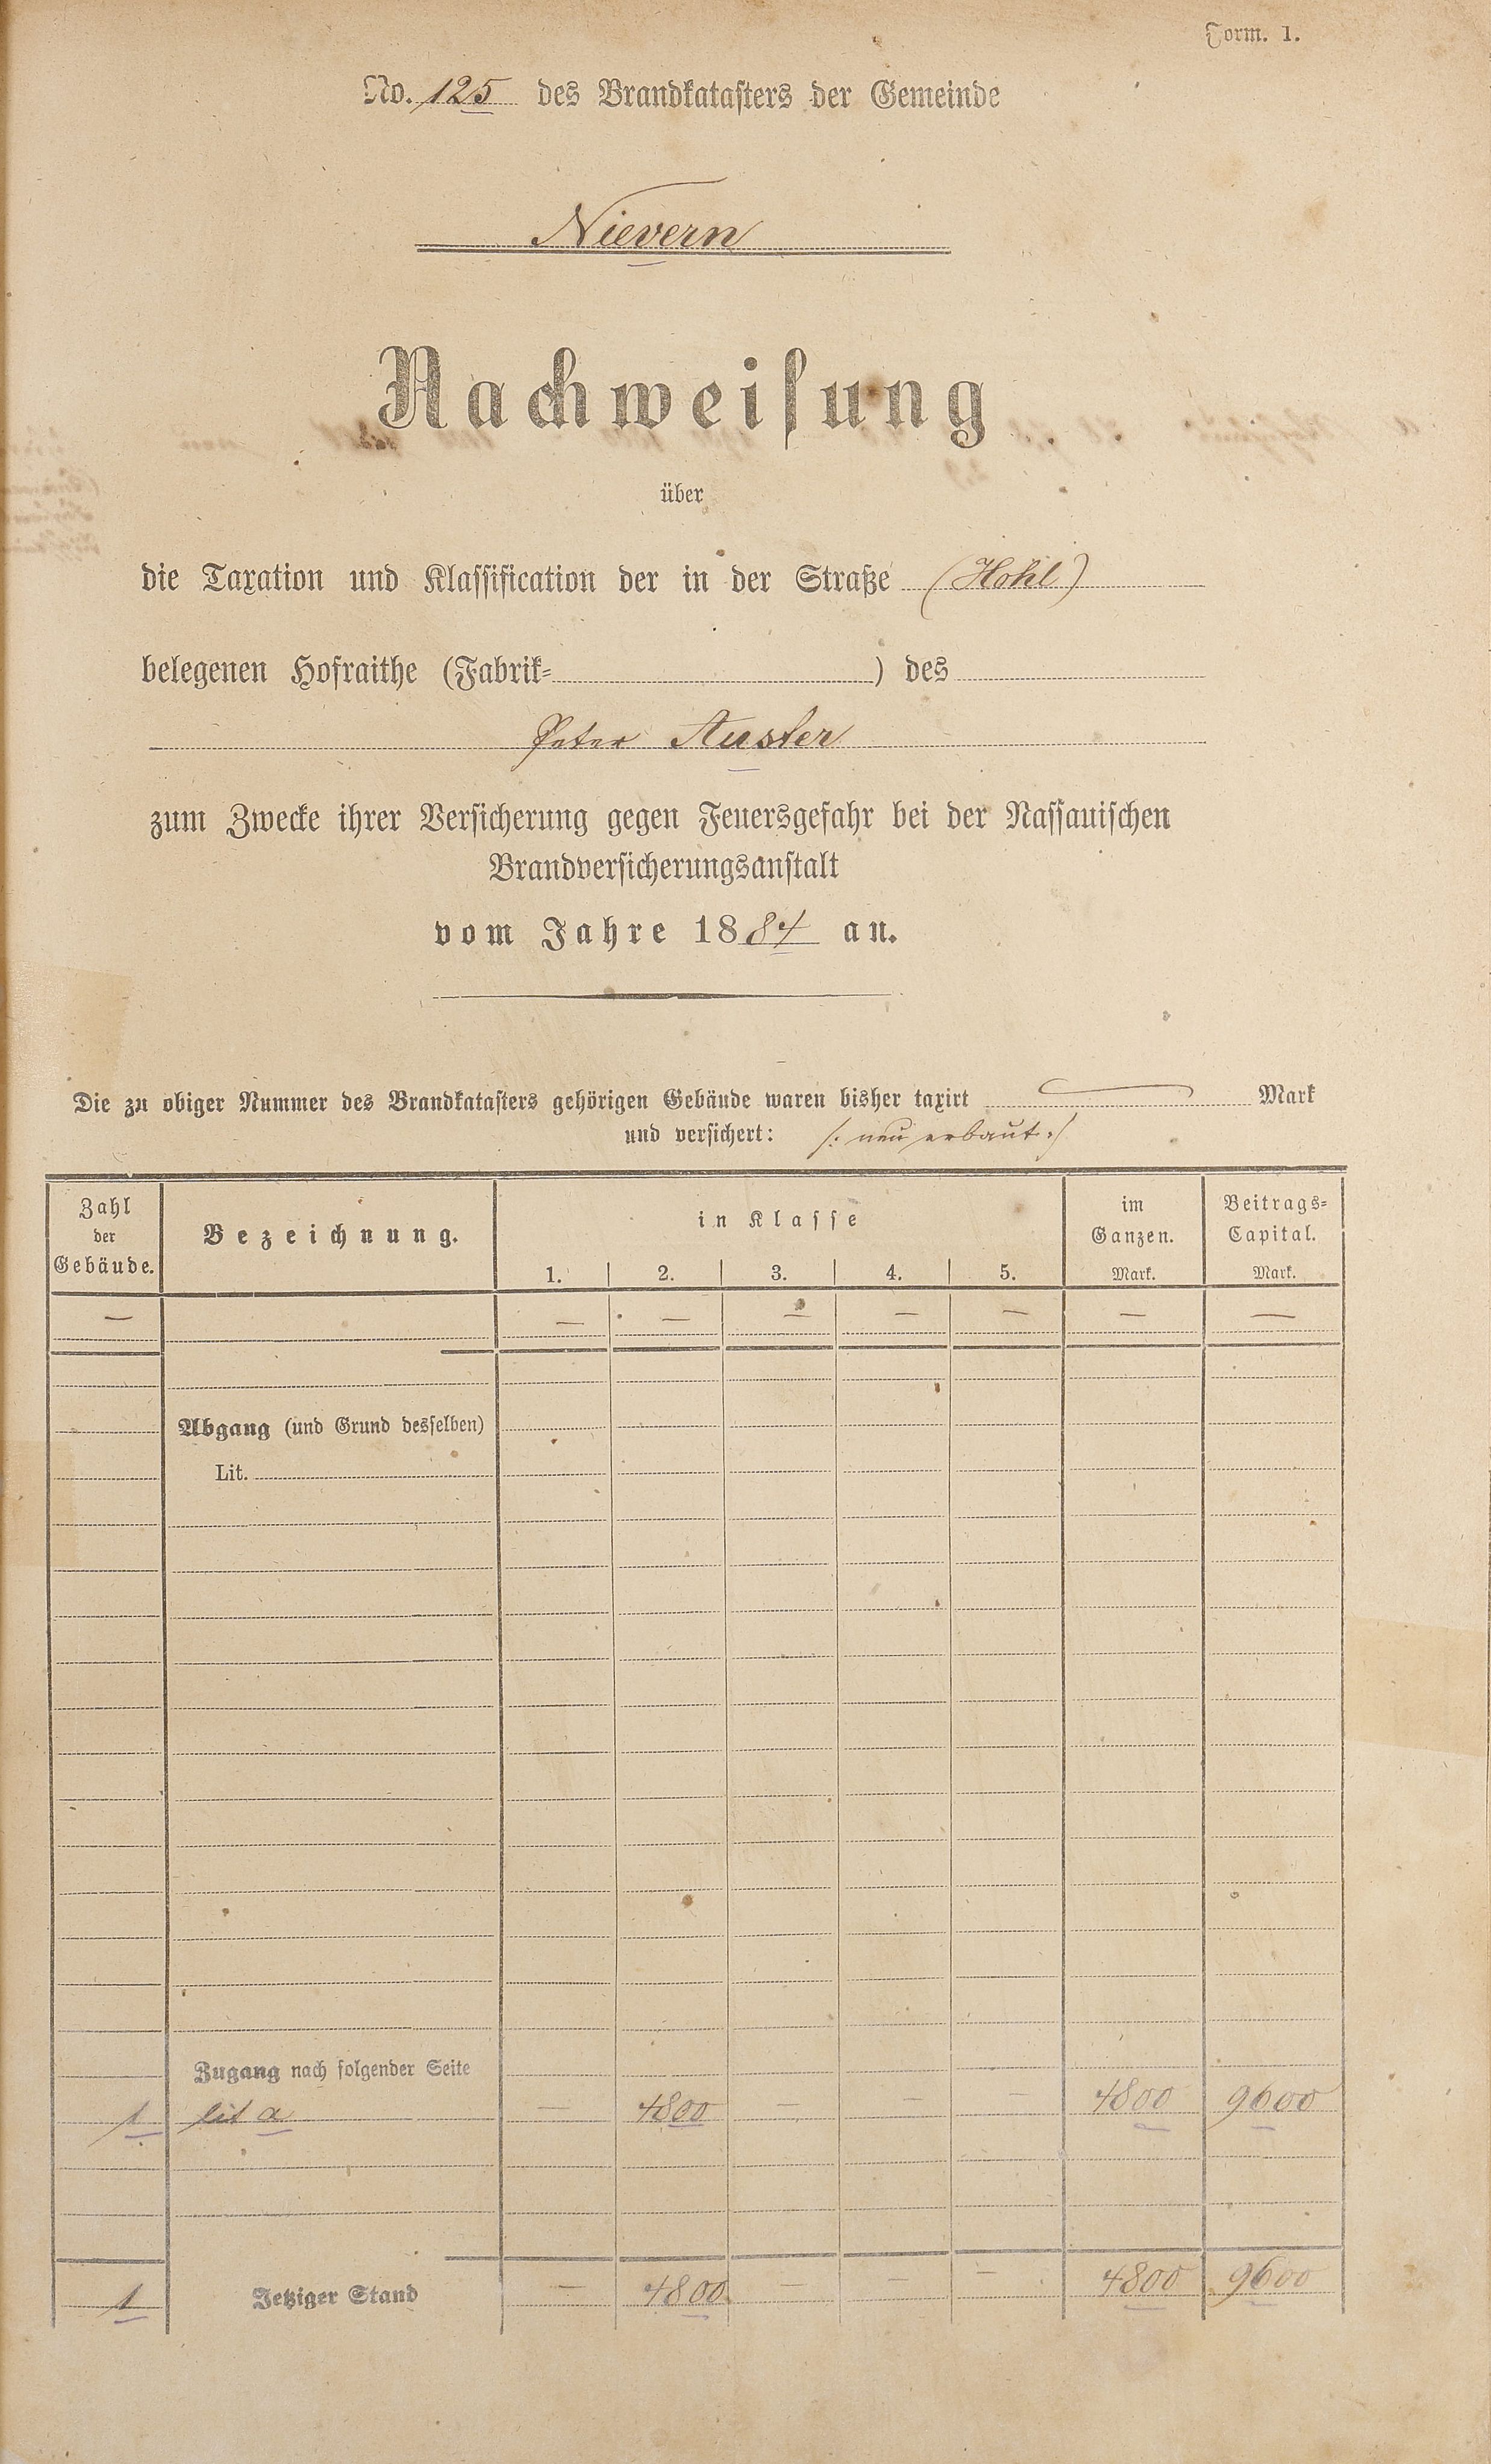 Form. 1.
No. 125 des Brandkatasters der Gemeinde
Nievern
Nachweisung
über
die Taxation und Klassification der in der Straße (Hohl)
belegenen Hofraithe (Fabrik- ) des
Peter Auster
zum Zwecke ihrer Versicherung gegen Feuersgefahr bei der Nassauischen
Brandversicherungsanstalt
vom Jahre 1884 an.
Die zu obiger Nummer des Brandkatasters gehörigen Gebäude waren bisher taxirt — Mark
und versichert: /: neu erbaut :/
Zahl der Gebäude. Bezeichnung. in Klasse im Ganzen. Beitrags-Capital.
1. 2. 3. 4. 5. Mark. Mark.
— — — — — — — —
Abgang (und Grund desselben)
Lit.
Zugang nach folgender Seite
1 lit a — 4800 — — — 4800 9600
1 Jetziger Stand — 4800 — — — 4800 9600